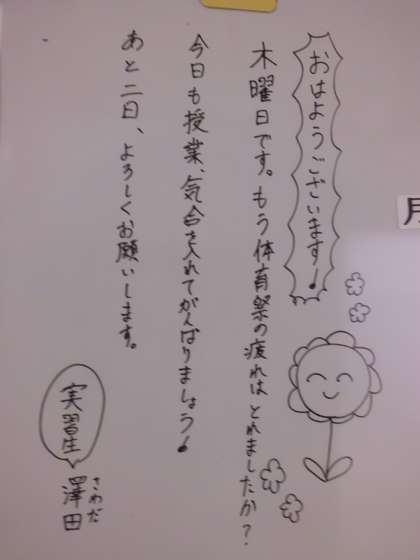 おはようございます!
木曜日です。もう体育祭の疲れはとれましたか?
今日も授業、気合を入れてがんばりましょう!
あと二日、よろしくお願いします。
実習生
澤田
さわだ
月